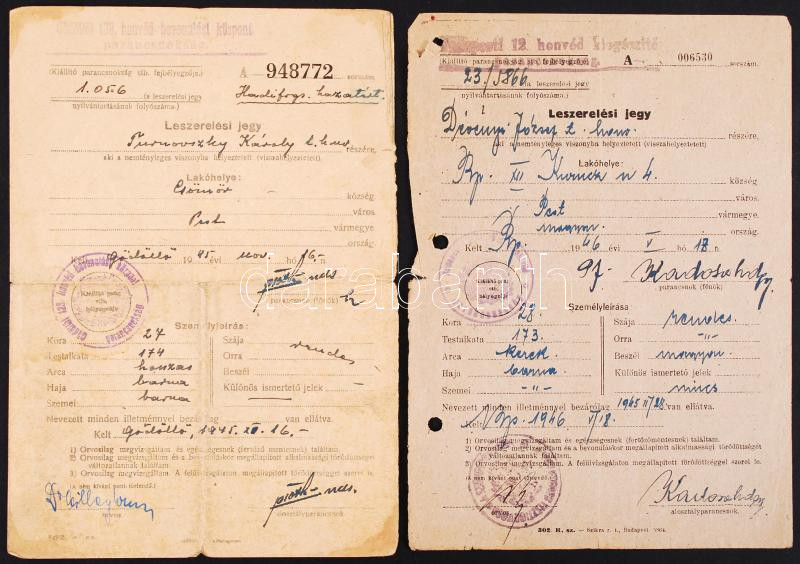 honvéd bevonulási központ
parancsnokság
(Kiállító parancsnokság stb. fejbélyegzője.)
A 948772 sorszám.
1.056 (a leszerelési jegy
nyilvántartásának folyószáma.)
Hadifogs. hazatért.
Leszerelési jegy
Turnovszky Károly t. honv. részére,
aki a nemtényleges viszonyba helyeztetett (visszahelyeztetett)
Lakóhelye:
Csömör község
város
Pest vármegye
ország.
Kelt Gödöllő 1945 évi nov. hó 16-n.
parancsnok (főnök)
Kiállító pság
stb.
bélyegzője
Személyleírása:
Kora 24
Testalkata 174
Arca hosszas
Haja barna
Szemei barna
Szája
Orra rendes
Beszél
Különös ismertető jelek —
Nevezett minden illetménnyel bezárólag van ellátva.
Kelt Gödöllő, 1945. XI. 16-n.
1) Orvosilag megvizsgáltam és egészségesnek (fertőző mentesnek) találtam.
2) Orvosilag megvizsgáltam és a bevonuláskor megállapított alkalmassági töródöttségét
változatlannak találtam.
3) Orvosilag megvizsgáltam. A felülvizsgálaton megállapított töródöttséggel szerel le.
(A nem kívánt pont törlendő.)
orvos
alosztályparancsnok
Budapesti 12. honvéd kiegészítő
(Kiállító parancsnokság stb. fejbélyegzője.)
A 006530 sorszám.
23/1866 (a leszerelési jegy
nyilvántartásának folyószáma.)
Leszerelési jegy
Dévényi József t. honv. részére,
aki a nemtényleges viszonyba helyeztetett (visszahelyeztetett)
Lakóhelye:
Bp. XII Kuncz u 4. község
város.
Pest vármegye
magyar ország.
Kelt Bp. 1946 évi V hó 18.n.
parancsnok (főnök)
Kiállító pság
stb.
bélyegzője
Személyleírása:
Kora 28.
Testalkata 173.
Arca kerek
Haja barna
Szemei -"-
Szája rendes.
Orra -"-
Beszél magyar.
Különös ismertető jelek
nincs
Nevezett minden illetménnyel bezárólag van ellátva.
Kelt Bp. 1946 V/18.
1) Orvosilag megvizsgáltam és egészségesnek (fertőzőmentesnek) találtam.
2) Orvosilag megvizsgáltam és a bevonuláskor megállapított alkalmassági töródöttségét
változatlannak találtam.
3) Orvosilag megvizsgáltam. A felülvizsgálaton megállapított töródöttséggel szerel le.
(A nem kívánt pont törlendő.)
orvos
alosztályparancsnok.
302. H. sz. — Szikra r. t., Budapest
darabanth